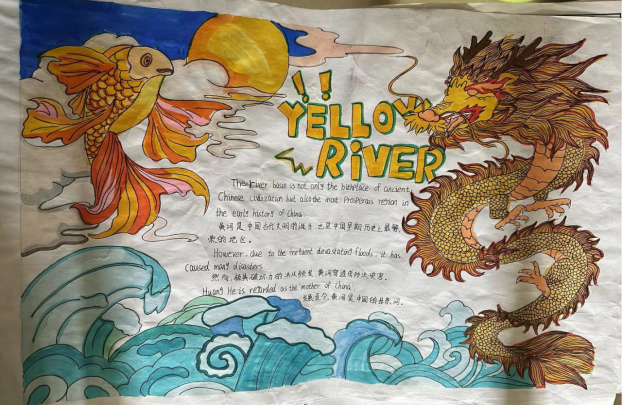 YELLOW
RiVER
The River basin is not only the birthplace of ancient
Chinese civilization but also the most Prosperous region in
the early history of China.
黄河是中国古代文明的诞生,也是中国早期历史上最繁
荣的地区。
However, due to the frequent devastating floods, it has
caused many disasters
然而,极具破坏力的洪水频发,黄河曾造成
Huang He is retarded as the mother of China.
黄河是中国的母亲河。